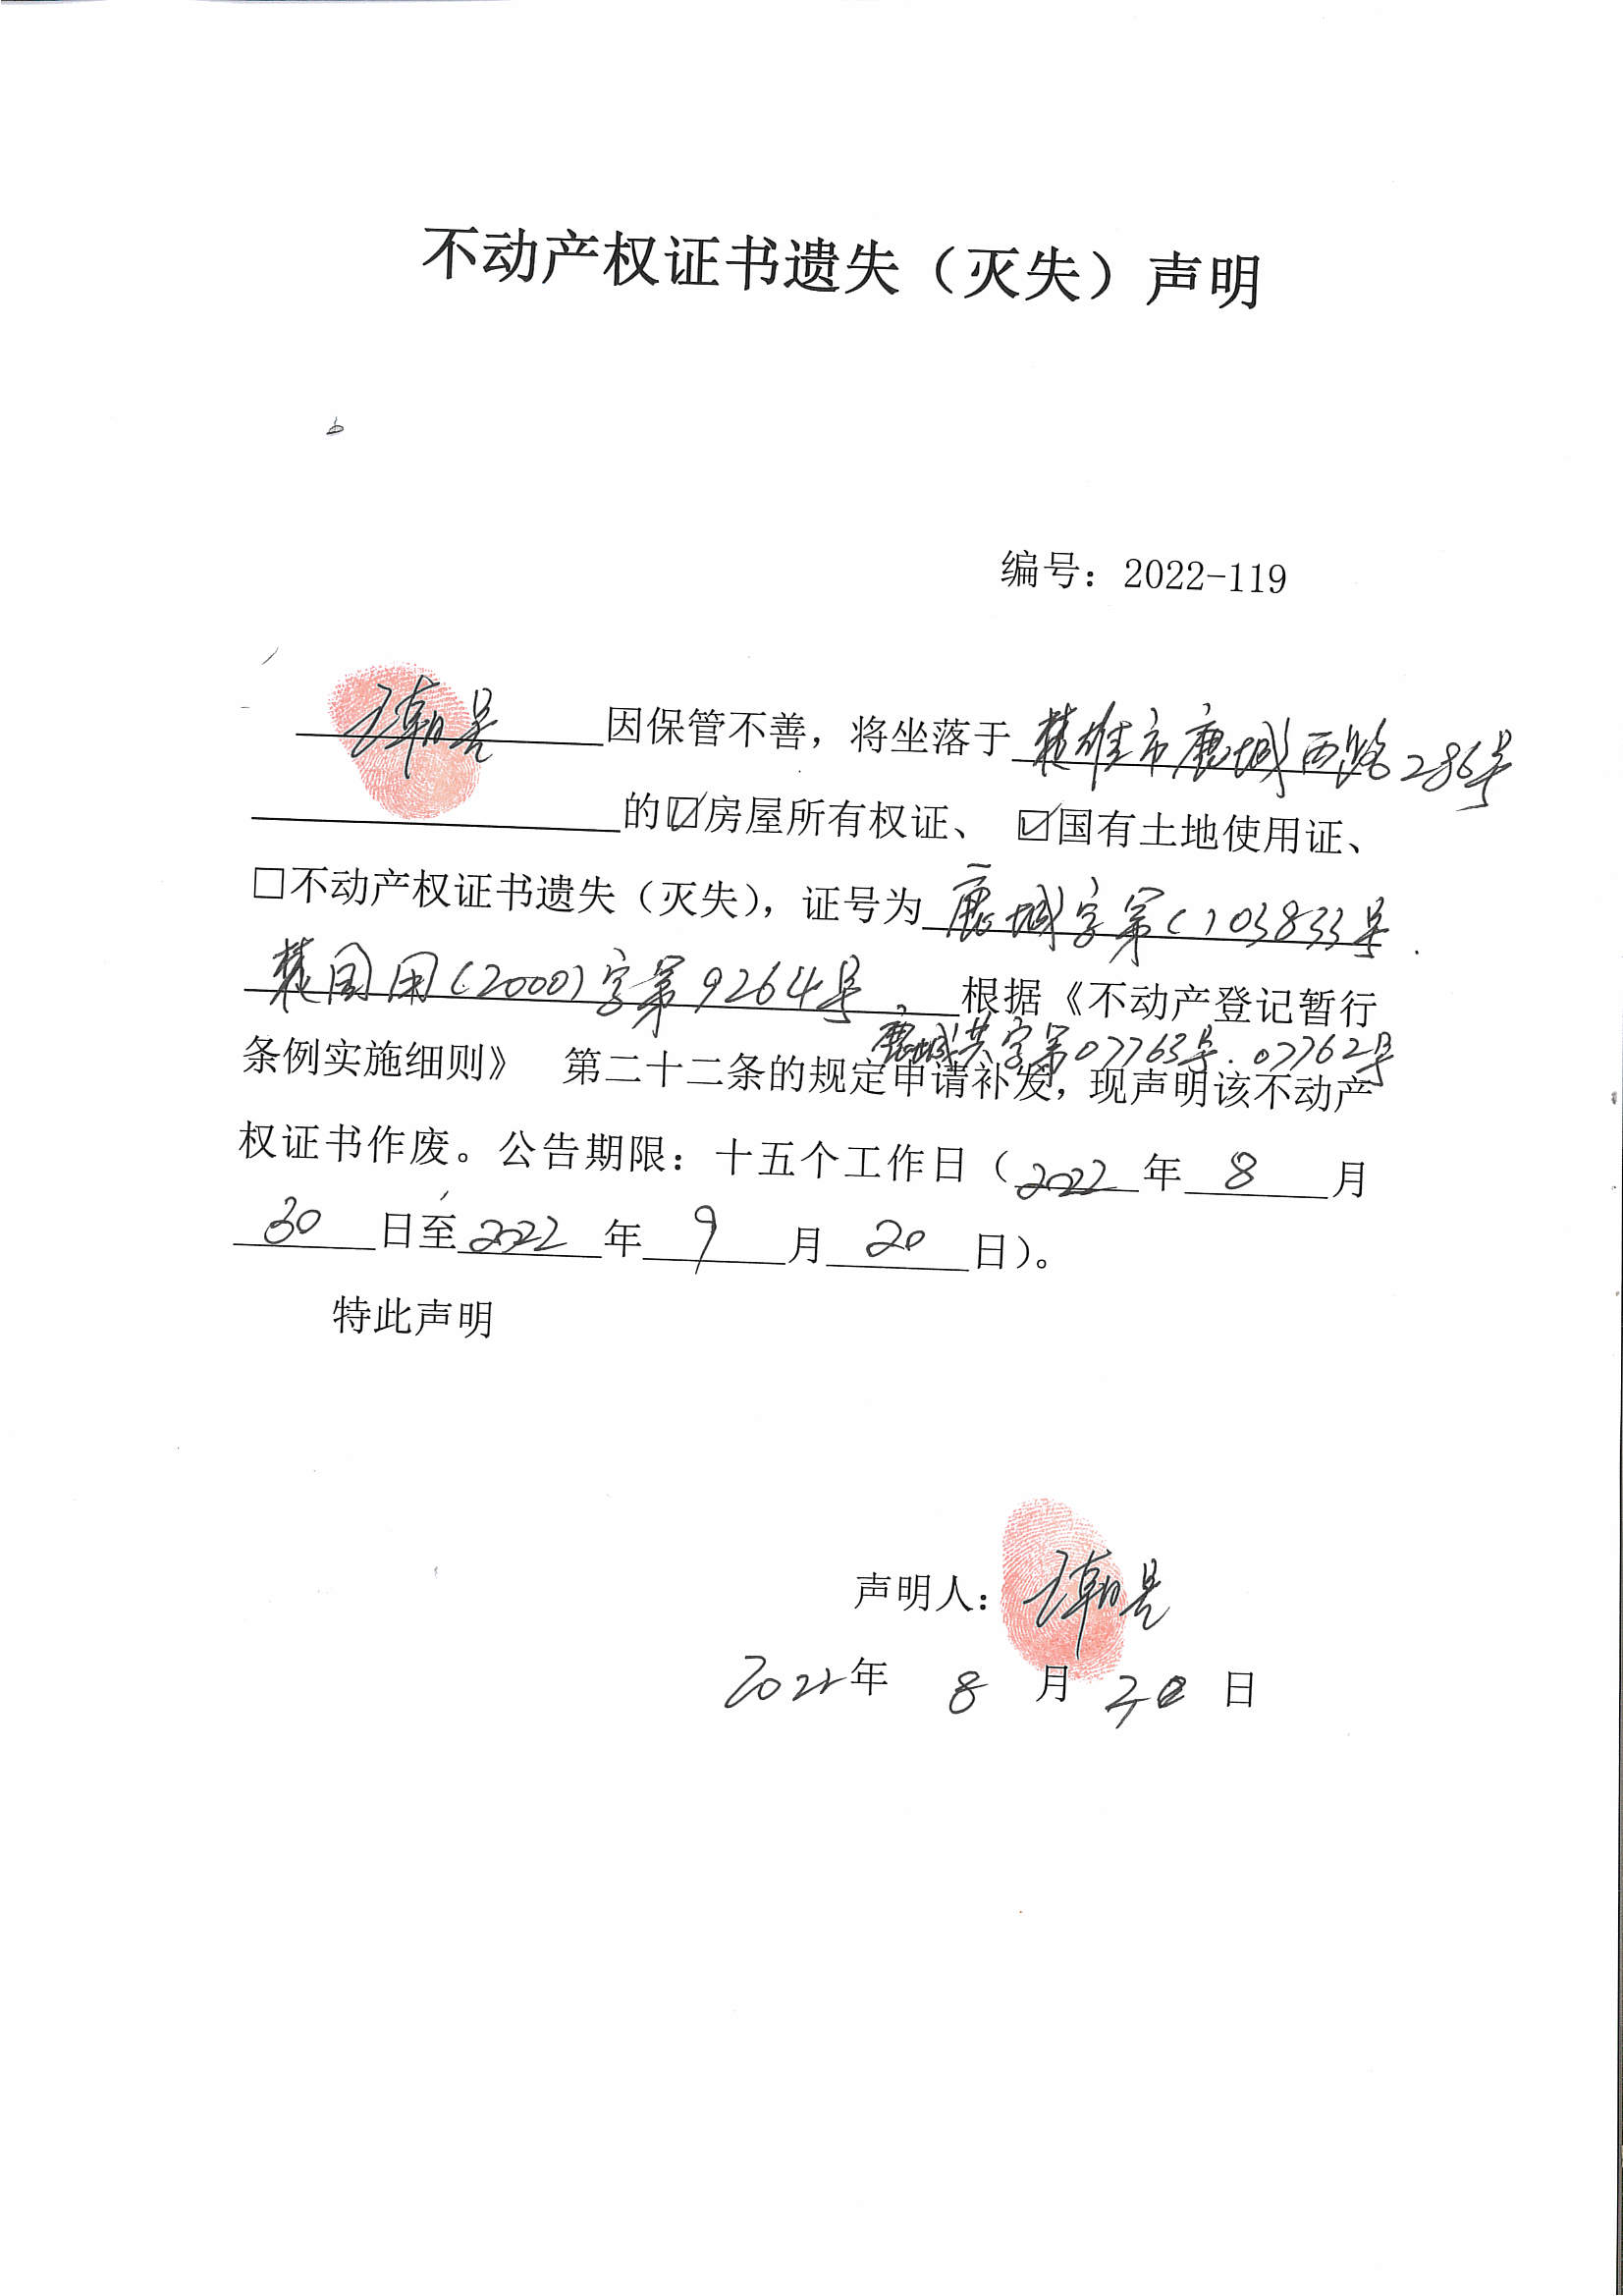 不动产权证书遗失（灭失）声明
编号：2022-119
王朝 因保管不善，将坐落于 楚雄市鹿城西路286号
的☑房屋所有权证、 ☑国有土地使用证、
□不动产权证书遗失（灭失），证号为 鹿城字第()03833号.
楚国用(2000)字第9264号、 根据《不动产登记暂行
鹿城共字第07763号.07762号
条例实施细则》 第二十二条的规定申请补发，现声明该不动产
权证书作废。公告期限：十五个工作日（2022 年 8 月
30 日至 2022 年 9 月 20 日）。
特此声明
声明人：王朝
2022年 8 月 30 日